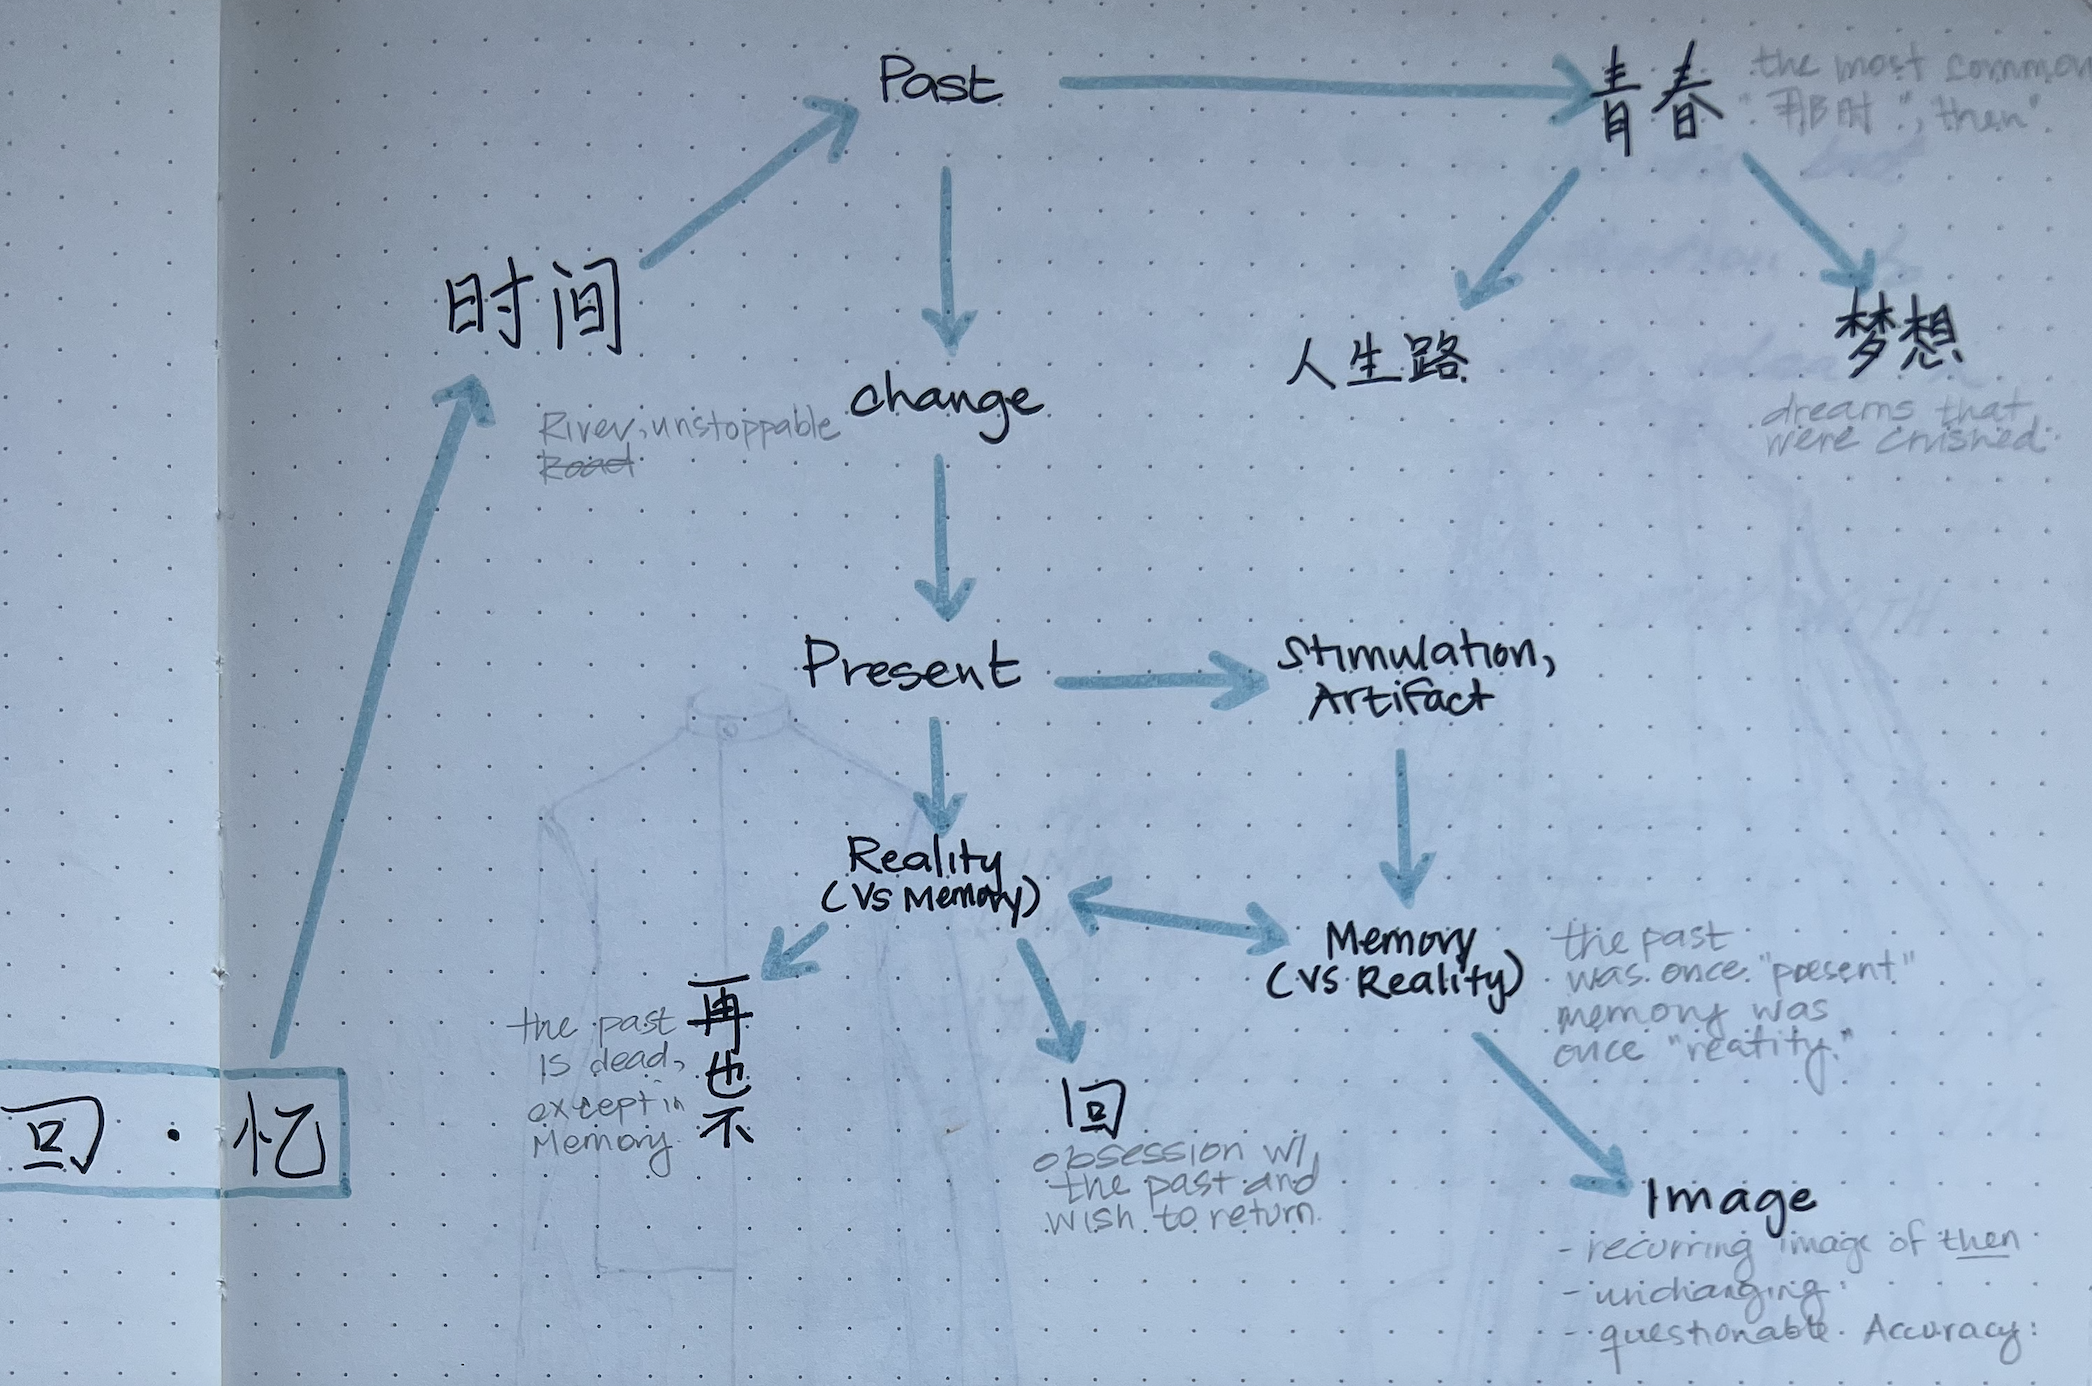 Past
青春
the most common
"那时", "then".
时间
River, unstoppable
Road
change
人生路
梦想
dreams that
were crushed.
Present
Stimulation,
Artifact
Reality
(vs Memory)
Memory
(vs Reality)
the past
was once "present"
memory was
once "reality."
再
也
不
the past
is dead,
except in
Memory.
回
obsession w/
the past and
wish to return.
回·忆
Image
- recurring image of then
- unchanging
- questionable Accuracy.